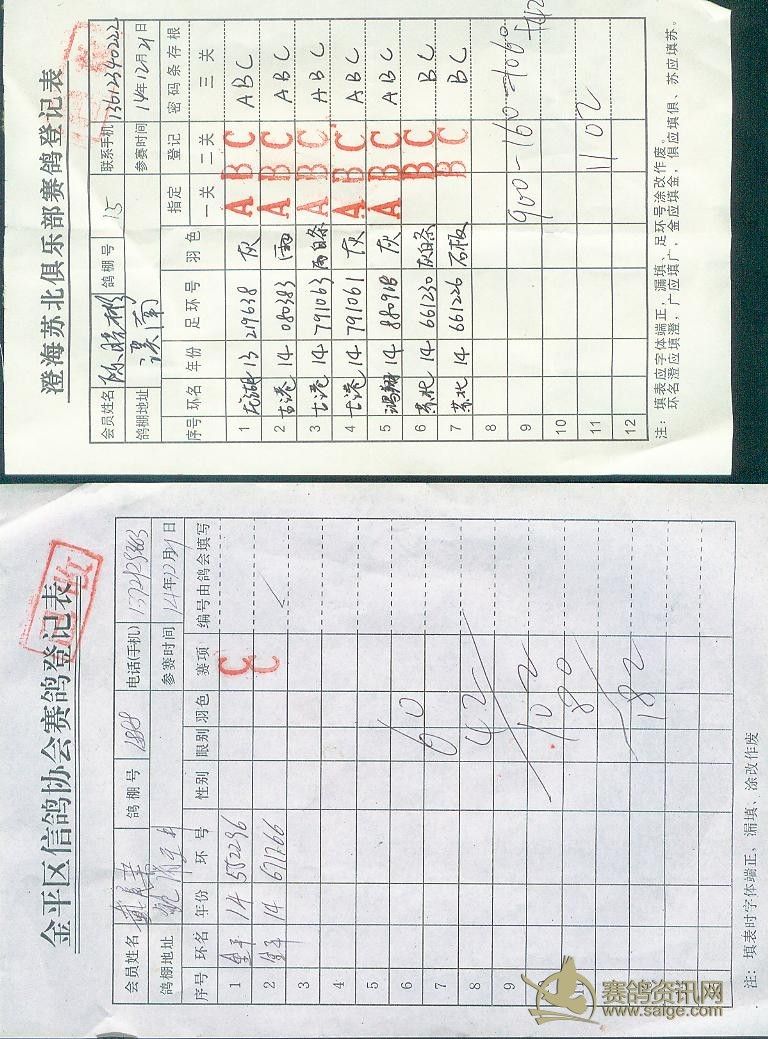 澄海苏北俱乐部赛鸽登记表
会员姓名 鸽棚号 15 联系手机 13612340222
鸽棚地址 参赛时间 14年12月21日
序号 环名 年份 足环号 羽色 指定 登记 密码条存根
一关 二关 三关
1 龙湖 13 219638 灰 A B C A B C
2 古港 14 080383 雨 A B C A B C
3 古港 14 791063 雨白条 A B C A B C
4 古港 14 791061 灰 A B C A B C
5 鸿翔 14 880918 灰 A B C A B C
6 苏北 14 661230 灰白条 B C B C
7 苏北 14 661226 石板 B C B C
8
9 900-160=1060
10
11 1102
12
注：填表应字体端正，漏填、足环号涂改作废。
环名澄应填澄，广应填广，金应填金，俱应填俱、苏应填苏。
金平区信鸽协会赛鸽登记表
会员姓名 鸽棚号 电话(手机)
鸽棚地址 参赛时间 14年12月21日
序号 环名 年份 环号 性别 眼别 羽色 赛项 编号由鸽会填写
1 金平 14 552296 C
2 金平 14 671766 C
3
4
5
6 60
7
8 42
9
102
80
182
注：填表时字体端正，漏填、涂改作废
赛鸽资讯网
www.saige.com